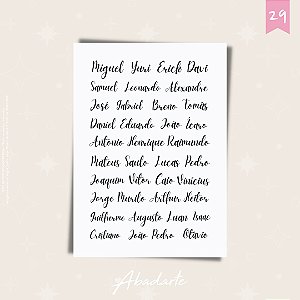 29
Miguel Yuri Erick Davi
Samuel Leonardo Alexandre
José Gabriel Breno Tomás
Daniel Eduardo João Ícaro
Antônio Henrique Raimundo
Mateus Saulo Lucas Pedro
Joaquim Vitor Caio Vinicius
Jorge Murilo Arthur Heitor
Guilherme Augusto Luan Isaac
Cristiano João Pedro Otávio
Abadarte